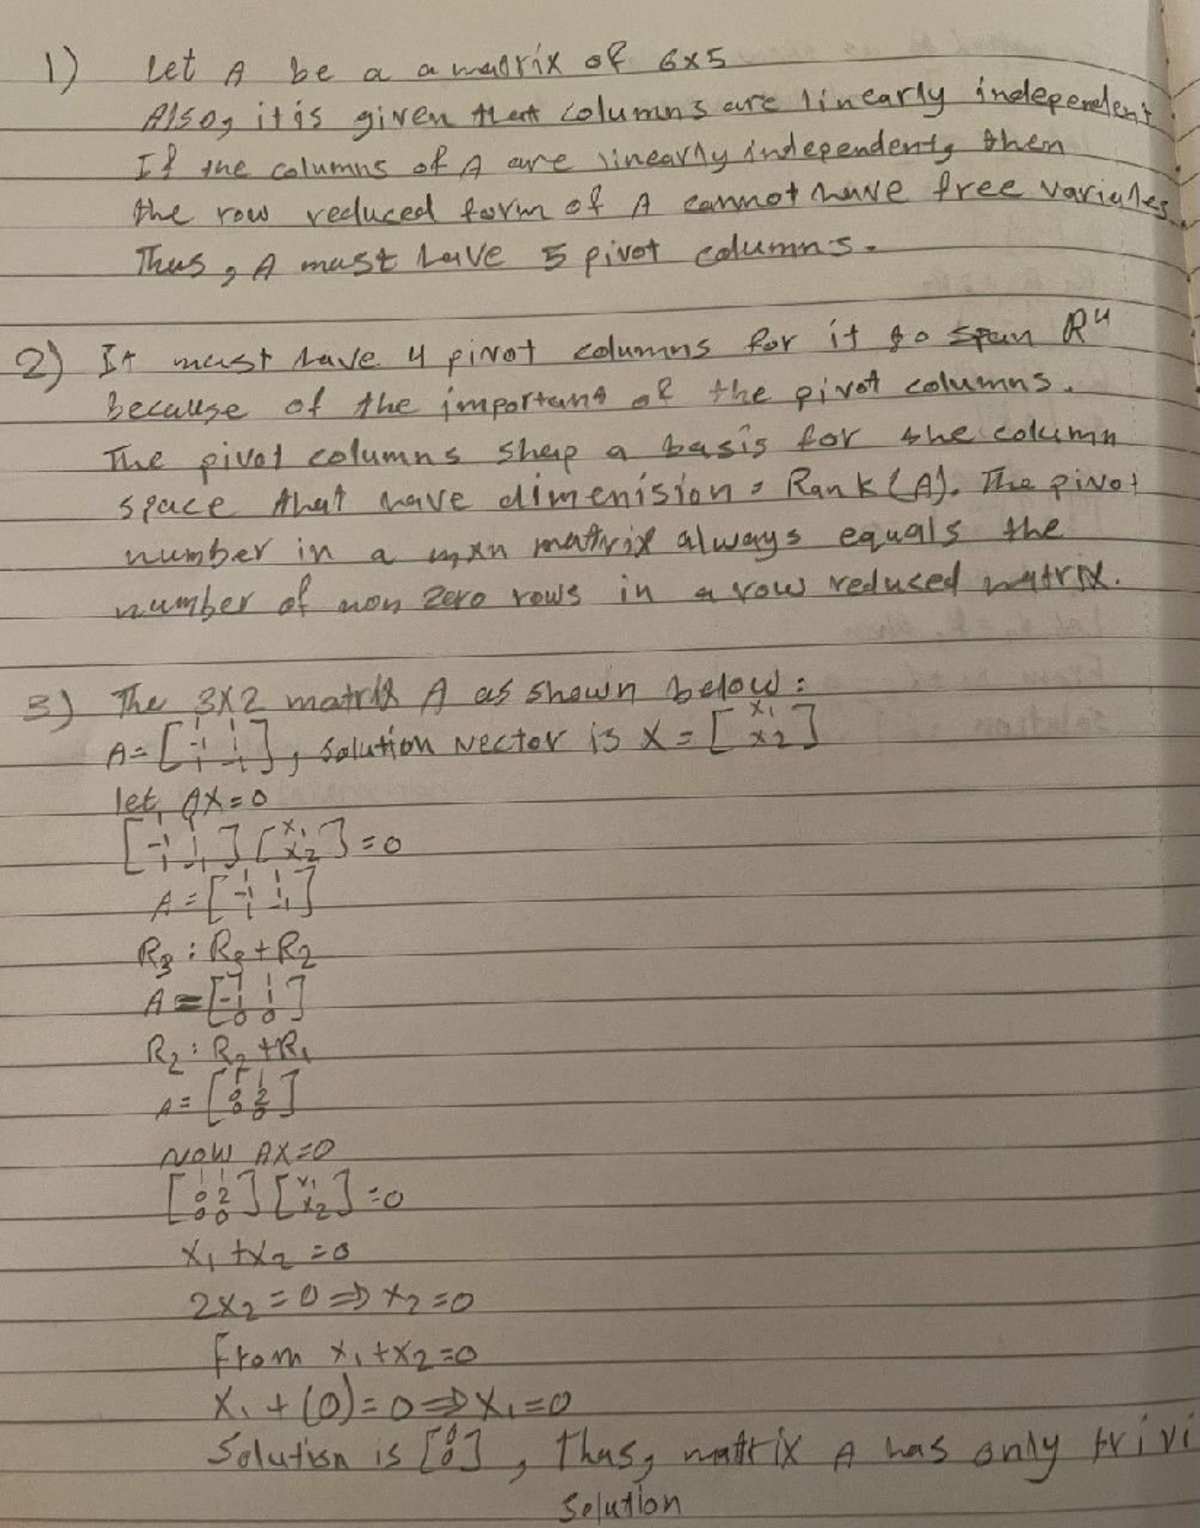 1) Let A be a a matrix of 6x5
Also, it is given that columns are linearly independent
If the columns of A are linearly independent, then
the row reduced form of A cannot have free variables.
Thus, A must have 5 pivot columns.
2) It must have 4 pivot columns for it to span R⁴
because of the important of the pivot columns.
The pivot columns shap a basis for the column
space that have dimenision = Rank(A). The pivot
number in a mxn matrix always equals the
number of non zero rows in a row redused matrix.
3) The 3x2 matrix A as shown below:
A = [1 1; -1 1; 1 -1], solution vector is X = [x₁; x₂]
let, AX = 0
[1 1; -1 1; 1 -1] [x₁; x₂] = 0
A = [1 1; -1 1; 1 -1]
R₃ : R₃ + R₂
A = [1 1; -1 1; 0 0]
R₂ : R₂ + R₁
A = [1 1; 0 2; 0 0]
Now AX = 0
[1 1; 0 2; 0 0] [x₁; x₂] = 0
x₁ + x₂ = 0
2x₂ = 0 ⇒ x₂ = 0
From x₁ + x₂ = 0
x₁ + (0) = 0 ⇒ x₁ = 0
Solution is [0; 0], Thus, matrix A has only trivi
solution